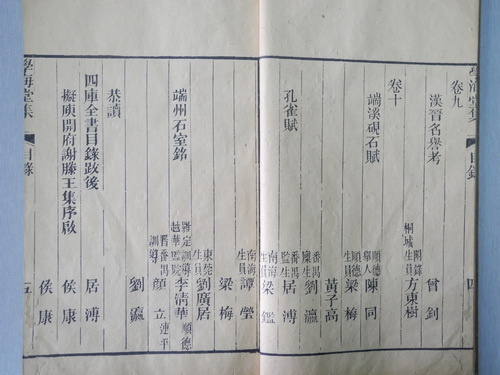 學海堂集
目錄
四
卷九
漢晉名譽考
曾釗
桐城生員
方東樹
卷十
端溪硯石賦
順德舉人
陳同
順德生員
梁梅
黃子高
孔雀賦
番禺廩生
劉瀛
番禺監生
居溥
南海生員
梁鑑
南海生員
譚瑩
梁梅
東莞生員
劉廣居
端州石室銘
越華監院
李清華
順德
訓導
顏立
連平
劉瀛
恭讀
四庫全書目錄跋後
居溥
擬庾開府謝滕王集序啟
侯康
侯康
學海堂集
目錄
五